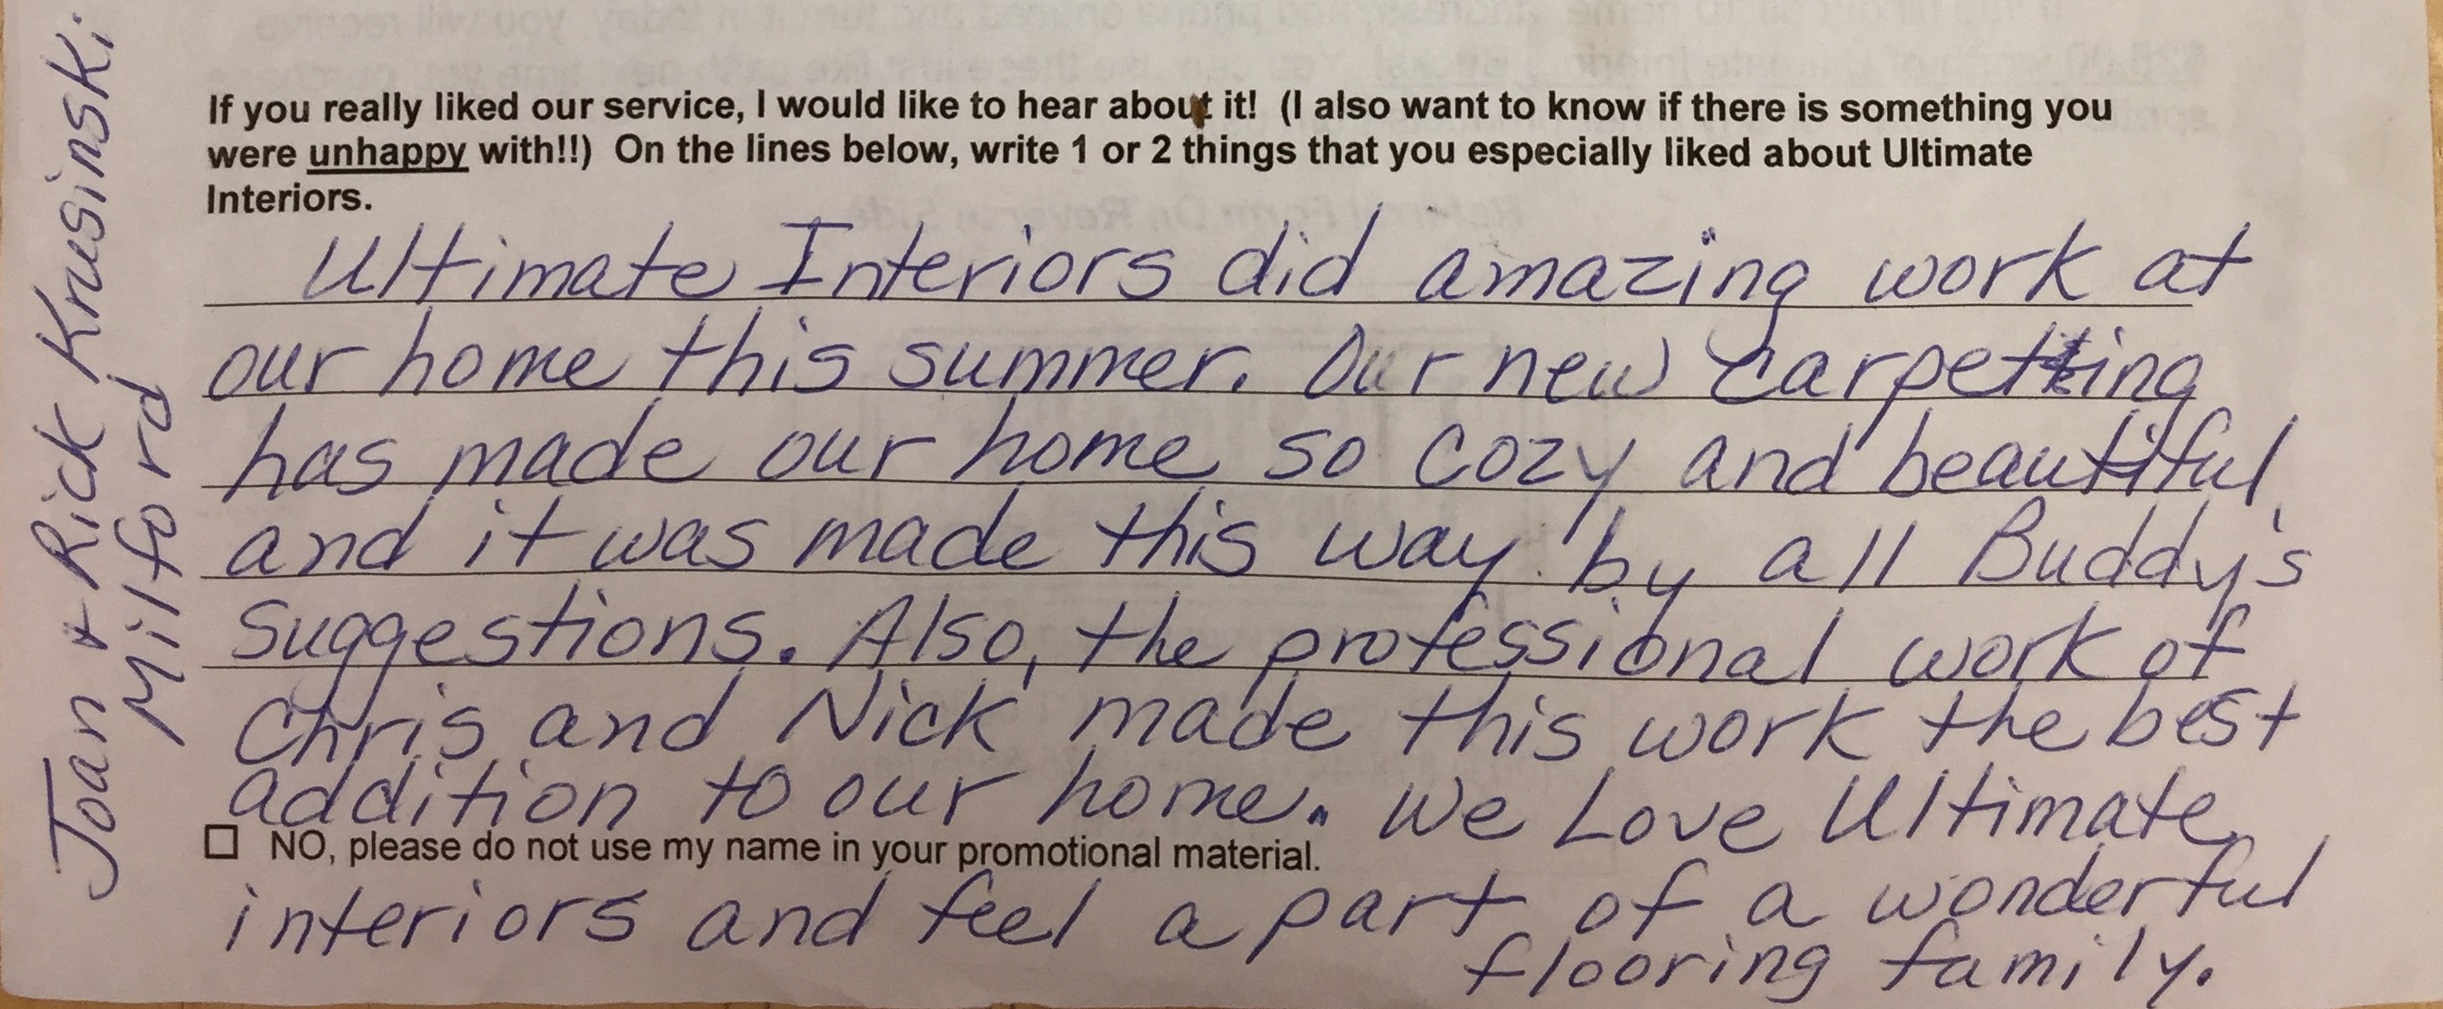 If you really liked our service, I would like to hear about it!  (I also want to know if there is something you
were unhappy with!!)  On the lines below, write 1 or 2 things that you especially liked about Ultimate
Interiors.
Ultimate Interiors did amazing work at
our home this summer. Our new carpetting
has made our home so cozy and beautiful
and it was made this way by all Buddy's
suggestions. Also, the professional work of
Chris and Nick made this work the best
addition to our home. We Love Ultimate
☐ NO, please do not use my name in your promotional material.
interiors and feel a part of a wonderful
flooring family.
Joan + Rick Krusinski
Milford